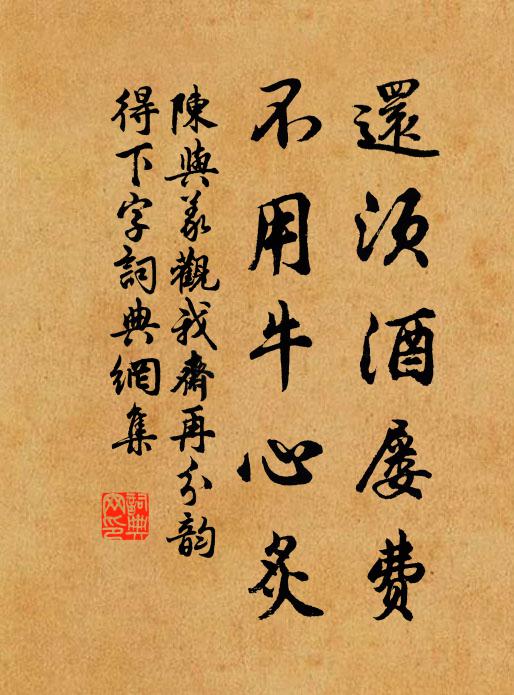 還須酒屡費
不用牛心炙
陳與義觀我齋再分韵
得下字詞典網集
詞典
网印